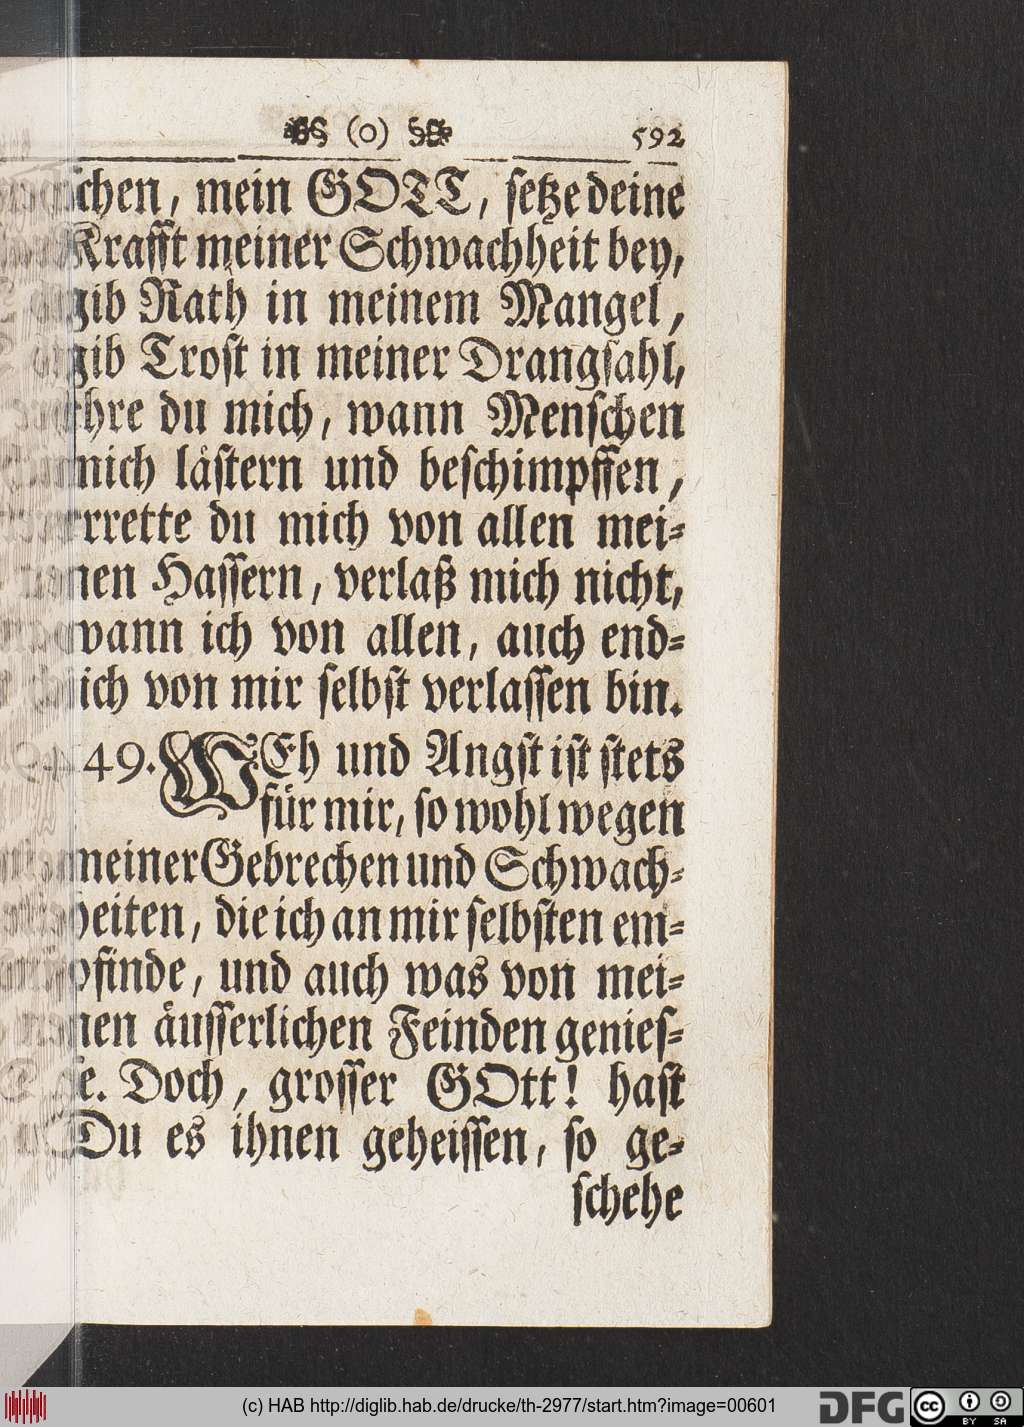 (o) 592
schen, mein GOTT, setze deine
Krafft meiner Schwachheit bey,
gib Rath in meinem Mangel,
gib Trost in meiner Drangsahl,
ehre du mich, wann Menschen
mich låstern und beschimpffen,
errette du mich von allen mei-
nen Hassern, verlaß mich nicht,
wann ich von allen, auch end-
lich von mir selbst verlassen bin.
49. WEh und Angst ist stets
für mir, so wohl wegen
meiner Gebrechen und Schwach-
heiten, die ich an mir selbsten em-
pfinde, und auch was von mei-
nen äusserlichen Feinden genies-
se. Doch, grosser GOtt! hast
Du es ihnen geheissen, so ge-
schehe
(c) HAB http://diglib.hab.de/drucke/th-2977/start.htm?image=00601
DFG
cc BY SA